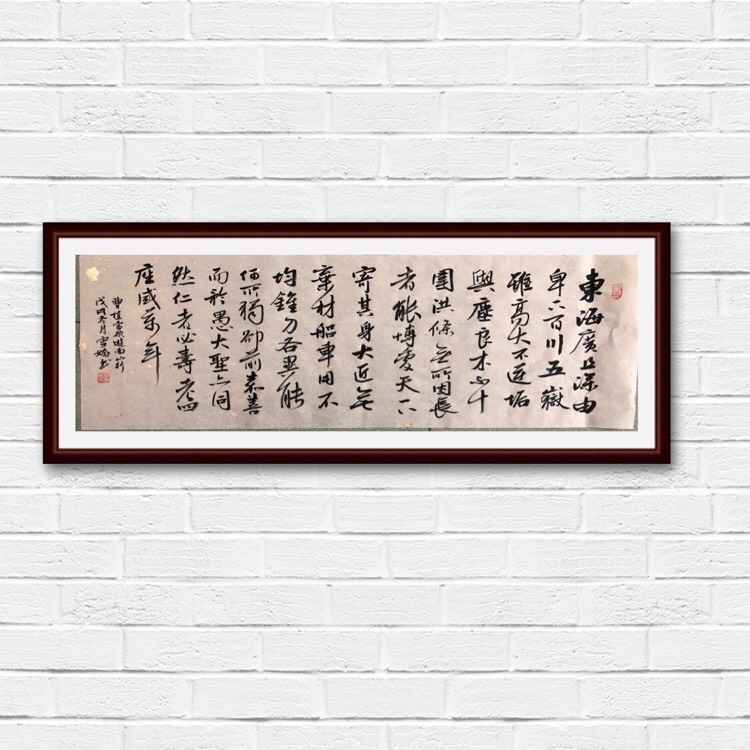 東海廣且深由
卑下百川五嶽
雖高大不逆垢
與塵良木不十
圍洪條無所因長
者能博愛天下
寄其身大匠無
棄材船車用不
均錐刀各異能
何所獨卻前嘉善
而矜愚大聖亦同
然仁者必壽考四
座咸萬年
曹植當欲遊南山行
戊戌冬月雪